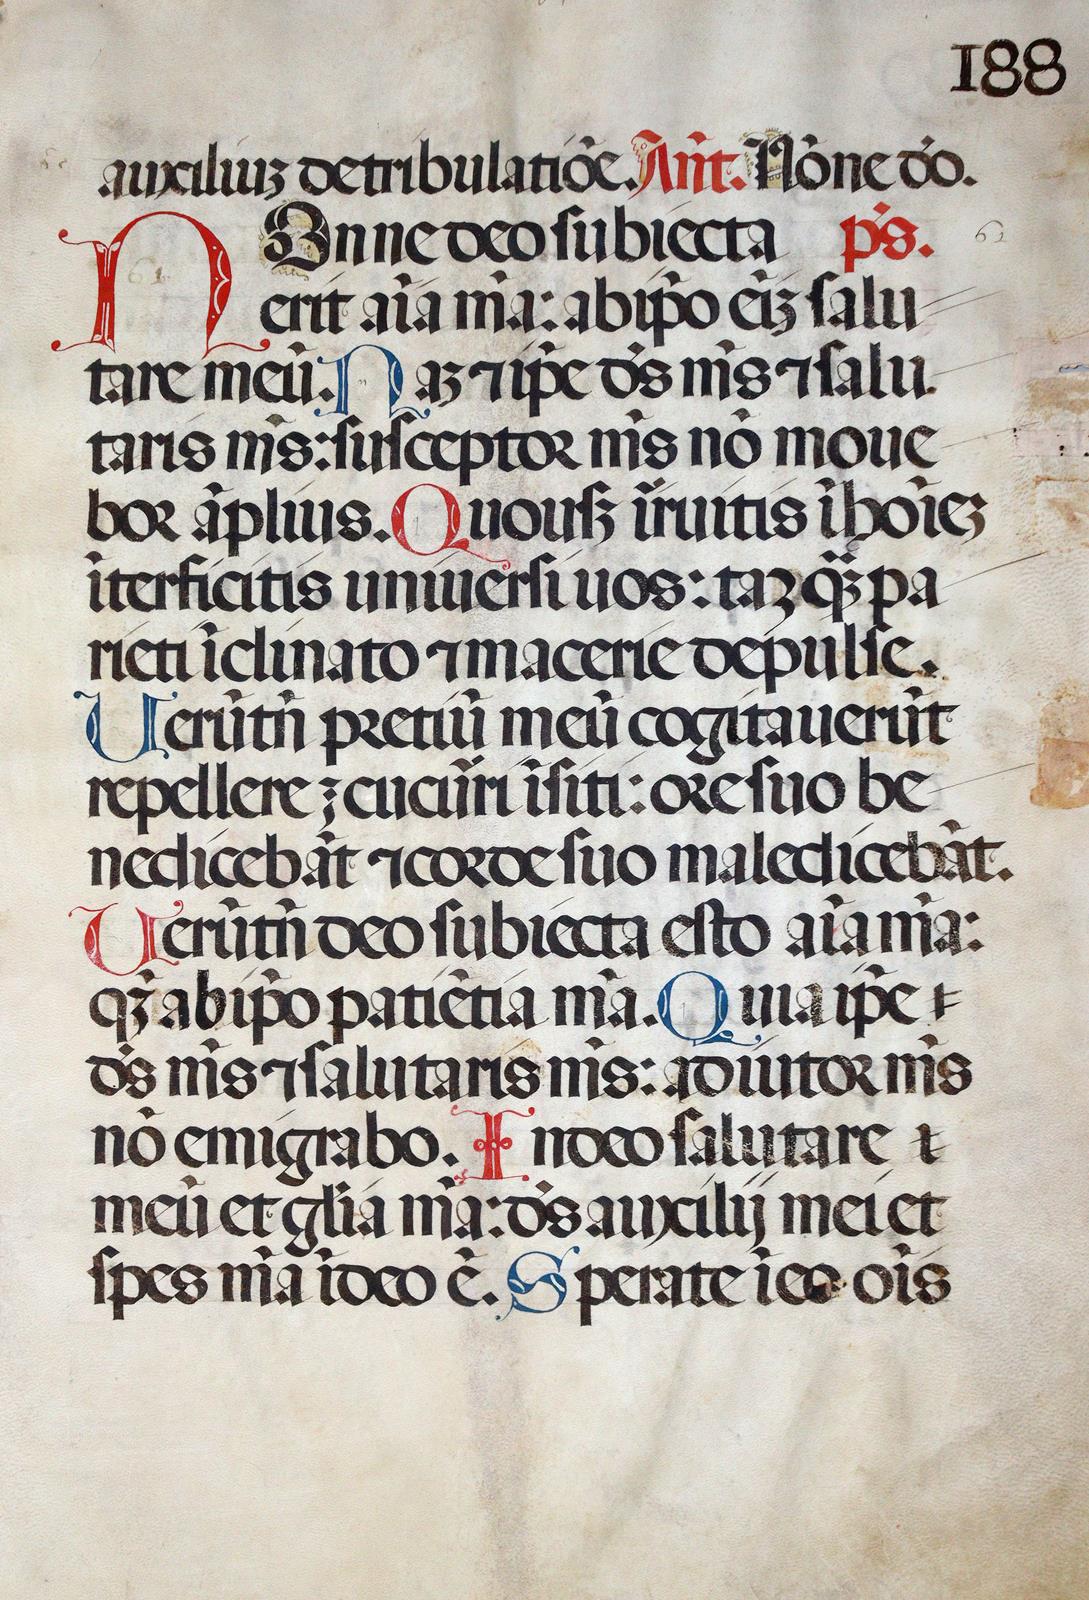 188
auxiliuꝫ de tribulatiõe. Añt. Nõne dõ.
NOnne deo subiecta p̃s. 61
erit aĩa m̃a: ab ip̃o eiꝫ salu
tare meũ. Naꝫ ⁊ ip̃e d̃s m̃s ⁊ salu
taris m̃s: susceptor m̃s nõ moue
bor ãplius. Quousꝫ ĩruitis ĩ hoĩeꝫ
ĩterficitis uniuersi uos: taꝫ q̃ꝫ pa
rieti ĩclinato ⁊ macerie depulse.
Uerũtñ pretiũ meũ cogitauerũt
repellere; cucurri ĩ siti: ore suo be
nedicebãt ⁊ corde suo maledicebãt.
Uerũtñ deo subiecta esto aĩa m̃a:
qꝫ ab ip̃o patiẽtia m̃a. Quia ip̃e
d̃s m̃s ⁊ salutaris m̃s: adiutor m̃s
nõ emigrabo. In deo salutare
meũ et gl̃ia m̃a: d̃s auxilij mei et
spes m̃a ĩ deo ẽ. Sperate ĩ eo oĩs